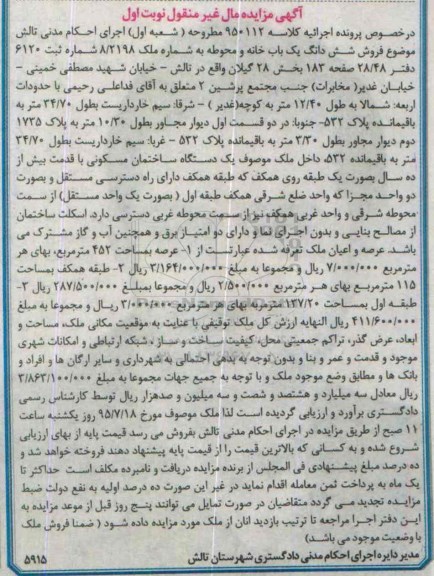 آگهی مزایده مال غیر منقول نوبت اول
درخصوص پرونده اجرائیه کلاسه ۹۵۰۱۱۲ مطروحه ( شعبه اول) اجرای احکام مدنی تالش
موضوع فروش شش دانگ یک باب خانه و محوطه به شماره ملک ۸/۲۱۹۸ شماره ثبت ۶۱۲۰
دفتر ۲۸/۴۸ صفحه ۱۸۳ بخش ۲۸ گیلان واقع در تالش - خیابان شهید مصطفی خمینی -
خیابان غدیر( مخابرات) جنب مجتمع پرشین ۲ متعلق به آقای فداعلی رحیمی با حدودات
اربعه: شمالا به طول ۱۲/۴۰ متر به کوچه(غدیر ) – شرقا: سیم خارداریست بطول ۳۴/۷۰ متر به
باقیمانده پلاک ۵۳۲- جنوبا: در دو قسمت اول دیوار مجاور بطول ۱۰/۳۰ متر به پلاک ۱۷۳۵
دوم دیوار مجاور بطول ۳/۳۰ متر به باقیمانده پلاک ۵۳۲ – غربا: سیم خارداریست بطول ۳۴/۷۰
متر به باقیمانده ۵۳۲، داخل ملک موصوف یک دستگاه ساختمان مسکونی با قدمت بیش از
ده سال بصورت یک طبقه روی همکف که طبقه همکف دارای راه دسترسی مستقل و بصورت
دو واحد مجزا که واحد ضلع شرقی همکف طبقه اول ( بصورت یک واحد مستقل) از سمت
محوطه شرقی و واحد غربی همکف نیز از سمت محوطه غربی دسترسی دارد. اسکلت ساختمان
از مصالح بنایی و بدون اجرای نما و دارای دو امتیاز برق و همچنین آب و گاز مشترک می
باشد. عرصه و اعیان ملک تعرفه شده عبارتست از ۱- عرصه بمساحت ۴۵۲ مترمربع، بهای هر
مترمربع ۷/۰۰۰/۰۰۰ ریال و مجموعا به مبلغ ۳/۱۶۴/۰۰۰/۰۰۰ ریال ۲- طبقه همکف بمساحت
۱۱۵ مترمربع بهای هر مترمربع ۲/۵۰۰/۰۰۰ ریال و مجموعا بمبلغ ۲۸۷/۵۰۰/۰۰۰ ریال ۳-
طبقه اول بمساحت ۱۳۷/۲۰ مترمربه بهای هر مترمربع ۳/۰۰۰/۰۰۰ ریال و مجموعا به مبلغ
۴۱۱/۶۰۰/۰۰۰ ریال النهایه ارزش کل ملک توقیفی با عنایت به موقعیت مکانی ملک، مساحت و
ابعاد، عرض گذر، تراکم جمعیتی محل، کیفیت ساخت و ساز ، شبکه ارتباطی و امکانات شهری
موجود و قدمت و عمر و بنا و بدون توجه به بدهی احتمالی به شهرداری و سایر ارگان ها و افراد و
بانک ها و مطابق وضع موجود ملک و با توجه به جمیع جهات مجموعا به مبلغ ۳/۸۶۳/۱۰۰/۰۰۰
ریال معادل سه میلیارد و هشتصد و شصت و سه میلیون و صدهزار ریال توسط کارشناس رسمی
دادگستری برآورد و ارزیابی گردیده است لذا ملک موصوف مورخ ۹۵/۷/۱۸ روز یکشنبه ساعت
۱۱ صبح از طریق مزایده در اجرای احکام مدنی تالش بفروش می رسد قیمت پایه از بهای ارزیابی
شروع شده و به کسانی که بالاترین قیمت را از قیمت پایه پیشنهاد دهند فروخته خواهد شد و
ده درصد مبلغ پیشنهادی فی المجلس از برنده مزایده دریافت و نامبرده مکلف است حداکثر تا
یک ماه به پرداخت ثمن معامله اقدام نماید در غیر این صورت ده درصد اولیه به نفع دولت ضبط
مزایده تجدید می گردد متقاضیان در صورت تمایل می توانند پنج روز قبل از موعد مزایده به
این دفتر اجرا مراجعه تا ترتیب بازدید انان از ملک مورد مزایده داده شود ( ضمنا فروش ملک
با وضعیت موجود می باشد)
مدیر دایره اجرای احکام مدنی دادگستری شهرستان تالش ۵۹۱۵